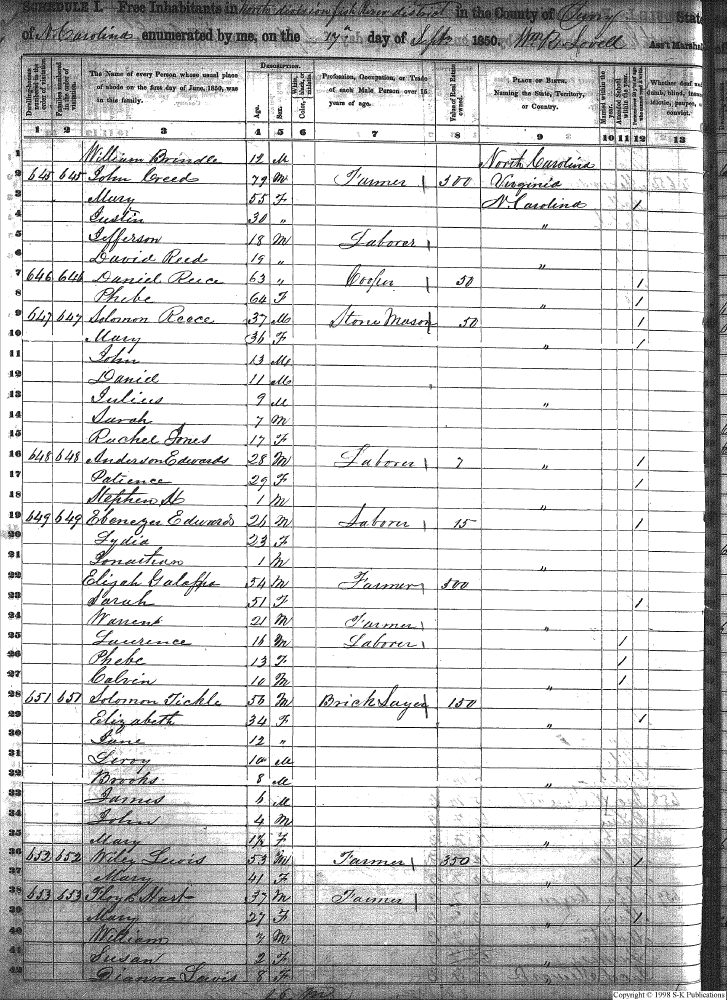 SCHEDULE I. Free Inhabitants in North division fish River district in the County of Surry State
of N. Carolina enumerated by me, on the 17th day of Sept 1850. Wm B Lovell Ass't Marshal
DESCRIPTION.
Dwelling-houses numbered in the order of visitation.
Families numbered in the order of visitation.
The Name of every Person whose usual place of abode on the first day of June, 1850, was in this family.
Age.
Sex.
White, black, or mulatto.
Color,
Profession, Occupation, or Trade of each Male Person over 15 years of age.
Value of Real Estate owned.
PLACE OF BIRTH. Naming the State, Territory, or Country.
Married within the year.
Attended School within the year.
Whether deaf and dumb, blind, insane, idiotic, pauper, or convict.
1 2 3 4 5 6 7 8 9 10 11 12 13
1 William Brindle 12 M North Carolina
2 645 645 John Creed 79 M Farmer 300 Virginia
3 Mary 55 F N. Carolina 1
4 Justin 30 "
5 Jefferson 18 M Laborer "
6 David Reed 19 "
7 646 646 Daniel Reece 63 " Cooper 50 " 1
8 Phebe 64 F 1
9 647 647 Solomon Reece 37 M Stone Mason 50 " 1
10 Mary 36 F 1
11 John 13 M
12 Daniel 11 M
13 Julius 9 M "
14 Sarah 7 M
15 Rachel Jones 17 F
16 648 648 Anderson Edwards 28 M Laborer 7 " 1
17 Patience 29 F 1
18 Stephen M 1 M "
19 649 649 Ebenezer Edwards 26 M Laborer 15 1
20 Lydia 23 F
21 Jonathan 1 M "
22 Elijah 54 M Farmer 500
23 Sarah 51 F 1
24 Warren 21 M Farmer "
25 Laurence 16 M Laborer 1
26 Phebe 13 F 1
27 Calvin 10 M 1
28 651 651 Solomon Tickle 56 M Brick Layer 150 "
29 Elizabeth 34 F 1
30 Jane 12 " "
31 Leroy 10 M
32 Brooks 8 M "
33 James 6 M
34 John 4 M
35 Mary F "
36 652 652 Wiley Lewis 53 M Farmer 350 1
37 Mary 41 F "
38 653 653 Floyd Hart 37 M Farmer
39 Mary 27 F " 1
40 William M
41 Susan 2 F "
42 Dianna Lewis 8 F
Copyright © 1998 S-K Publications